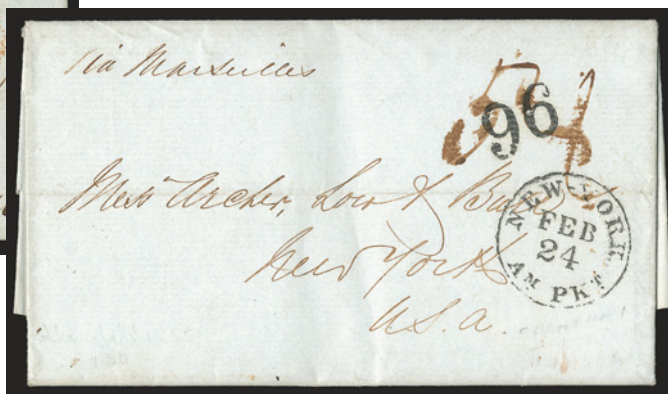 via Marseilles
5/
96
Mess Archer, Low &
New York
U.S.a.
NEW-YORK
FEB
24
AM PKT.